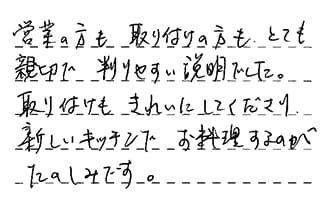 営業の方も 取り付けの方も とても
親切で 判りやすい説明でした。
取り付けも きれいにしてくださり
新しいキッチンで お料理するのが
たのしみです。